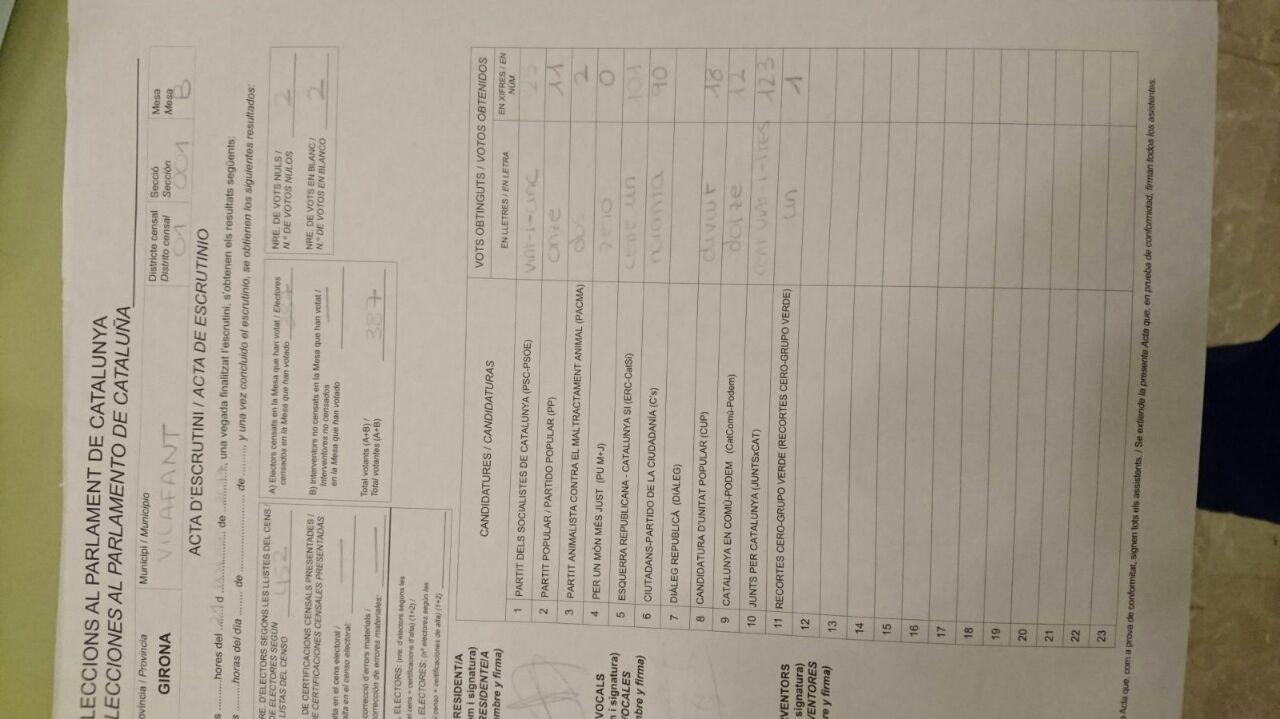 LECCIONS AL PARLAMENT DE CATALUNYA
LECCIONES AL PARLAMENTO DE CATALUÑA
ovíncia / Provincia
GIRONA
Municipi / Municipio
VILAFANT
Districte censal
Distrito censal
01
Secció
Sección
001
Mesa
Mesa
B
ACTA D'ESCRUTINI / ACTA DE ESCRUTINIO
s ..........hores del ........ d ............... de ..............., una vegada finalitzat l'escrutini, s'obtenen els resultats següents:
s ..........horas del día ........ de ............................ de .........., y una vez concluido el escrutinio, se obtienen los siguientes resultados:
RE. D'ELECTORS SEGONS LES LLISTES DEL CENS /
DE ELECTORES SEGÚN
LISTAS DEL CENSO
DE CERTIFICACIONS CENSALS PRESENTADES /
DE CERTIFICACIONES CENSALES PRESENTADAS
alta en el cens electoral /
alta en el censo electoral:
correcció d'errors materials /
corrección de errores materiales:
ELECTORS: (nre. electors segons les
el cens + certificacions d'alta) (1+2) /
ELECTORES: (nº electores según las
l censo + certificaciones de alta) (1+2)
A) Electors censats en la Mesa que han votat / Electores
censados en la Mesa que han votado
B) Interventors no censats en la Mesa que han votat /
Interventores no censados
en la Mesa que han votado
Total votants (A+B) /
Total votantes (A+B)
387
NRE. DE VOTS NULS /
N.º DE VOTOS NULOS
2
NRE. DE VOTS EN BLANC /
N.º DE VOTOS EN BLANCO
2
CANDIDATURES / CANDIDATURAS
VOTS OBTINGUTS / VOTOS OBTENIDOS
EN LLETRES / EN LETRA
EN XIFRES / EN
NÚM.
1 PARTIT DELS SOCIALISTES DE CATALUNYA (PSC-PSOE) vint-i-cinc 25
2 PARTIT POPULAR / PARTIDO POPULAR (PP) onze 11
3 PARTIT ANIMALISTA CONTRA EL MALTRACTAMENT ANIMAL (PACMA) dos 2
4 PER UN MÓN MÉS JUST (PU M+J) zero 0
5 ESQUERRA REPUBLICANA - CATALUNYA SI (ERC-CatSí) cent un 101
6 CIUTADANS-PARTIDO DE LA CIUDADANÍA (C's) noranta 90
7 DIÀLEG REPUBLICÀ (DIÀLEG)
8 CANDIDATURA D'UNITAT POPULAR (CUP) divuit 18
9 CATALUNYA EN COMÚ-PODEM (CatComú-Podem) dotze 12
10 JUNTS PER CATALUNYA (JUNTSxCAT) cent vint-i-tres 123
11 RECORTES CERO-GRUPO VERDE (RECORTES CERO-GRUPO VERDE) un 1
12
13
14
15
16
17
18
19
20
21
22
23
RESIDENT/A
m i signatura)
RESIDENTE/A
mbre y firma)
VOCALS
m i signatura)
OCALES
mbre y firma)
VENTORS
signatura)
VENTORES
re y firma)
Acta que, com a prova de conformitat, signen tots els assistents. / Se extiende la presente Acta que, en prueba de conformidad, firman todos los asistentes.